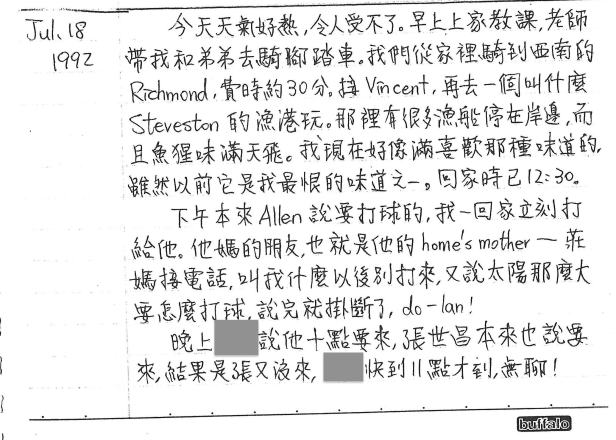 Jul. 18
1992
今天天氣好熱，令人受不了。早上上家教課，老師
帶我和弟弟去騎腳踏車。我們從家裡騎到西南的
Richmond，費時約30分。接Vincent，再去一個叫什麼
Steveston 的漁港玩。那裡有很多漁船停在岸邊，而
且魚猩味滿天飛。我現在好像滿喜歡那種味道的，
雖然以前它是我最恨的味道之一。回家時已12:30。
下午本來Allen說要打球的，我一回家立刻打
給他。他媽的朋友，也就是他的home's mother — 莊
媽接電話，叫我什麼以後別打來，又說太陽那麼大
要怎麼打球，說完就掛斷了，do-lan!
晚上 說他十點要來，張世昌本來也說要
來，結果是張又沒來， 快到11點才到，無聊!
buffalo